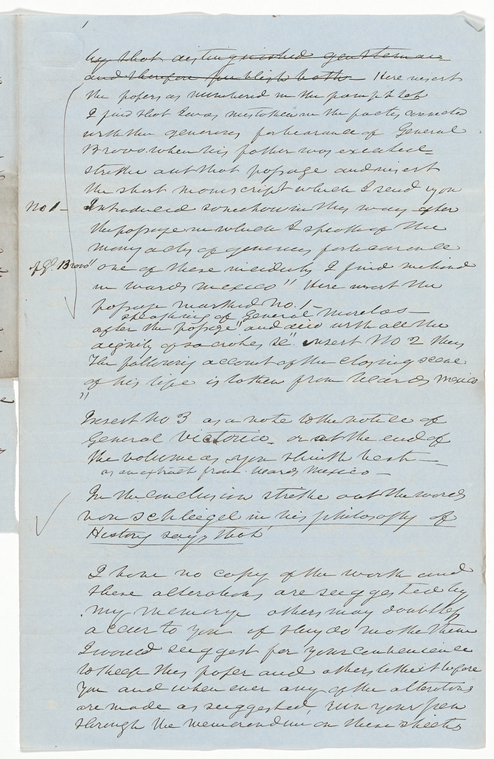 1
by that distinguished gentleman
and therefore publish both — Here insert
the papers as numbered in the pamphlet
I find that I was mistaken in the facts connected
with the generous forbearance of General
Bravo when his father was executed —
strike out that passage and insert
the short manuscript which I send you
No 1 — Introduced somehow in this way after
the passage in which I speak of the
many acts of generous forbearance
of Gl. Bravo" one of these incidents I find noticed
in wards mexico" Here insert the
passage marked No. 1 —
speaking of General Morelos —
after the passage "and died with all the
dignity of Socrates &c" insert No 2 thus
The following account of the closing scene
of his life is taken from Wards Mexico
"
Insert No 3 as a note to the notice of
General Victoria or at the end of
the volume as you think best —
as an extract from Wards Mexico —
In the conclusion strike out the words
von Schleigel in his philosophy of
History says that
I have no copy of the work and
these alterations are suggested by
my memory others may doubtless
occur to you if they do make them
I would suggest for your convenience
to keep this paper and others before
you and when ever any of the alterations
are made as suggested, run your pen
through the memorandum on these sheets